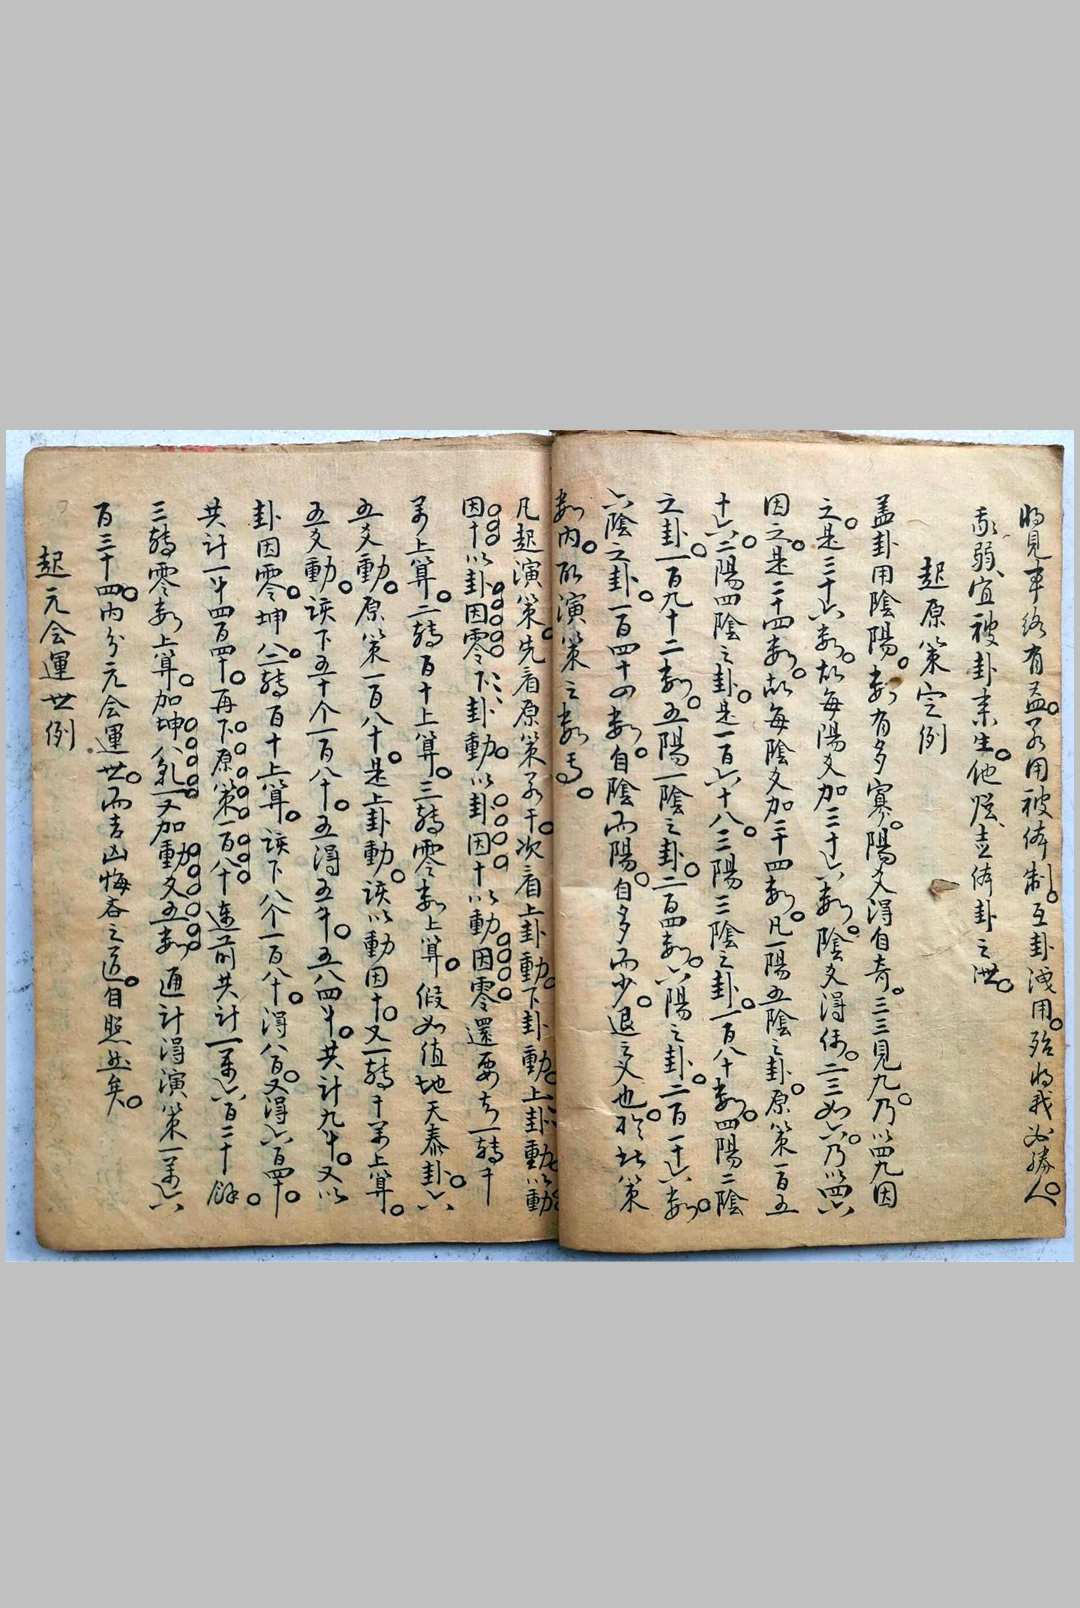 將見事終有益。若用被体制。互卦洩用。殆將我必勝人。
我弱、宜被卦來生。他勝、喜体卦之洩。
起原策定例
盖卦用陰陽。數有多寡。陽爻得自奇。三三見九。乃以四九因
之。是三十六數。故每陽爻加三十六數。陰爻得偶。二三如六。乃以四六
因之。是二十四數。故每陰爻加二十四數。凡一陽五陰之卦。原策一百五
十六。二陽四陰之卦。是一百六十八。三陽三陰之卦。一百八十數。四陽二陰
之卦。一百九十二數。五陽一陰之卦。二百四數。六陽之卦。二百一十六數。
六陰之卦。一百四十四數。自陰而陽。自多而少。退之义也。於此策
數內。取演策之數焉。
凡起演策。先看原策若干。次看上卦動。下卦動。上卦動以動
因十。以卦因零。下卦動。以卦因十。以動因零。還要知一轉千
萬上算。二轉百十上算。三轉零數上算。假如值地天泰卦。六
五爻動。原策一百八十。是上卦動。該以動因十。又一轉千萬上算。
五爻動。該下五十个一百八十。五得五千。五八四千。共計九千。又以
卦因零。坤八。二轉百十上算。該下八个一百八十。得八百。又得六百四十。
共計一千四百四十。再下原策一百八十。連前共計一萬六百二十餘。
三轉零數上算。加坤八、乾一、又加動爻五數。通計得演策一萬六
百三十四。內分元会運世。而吉凶悔吝之道。自照然矣。
起元会運世例